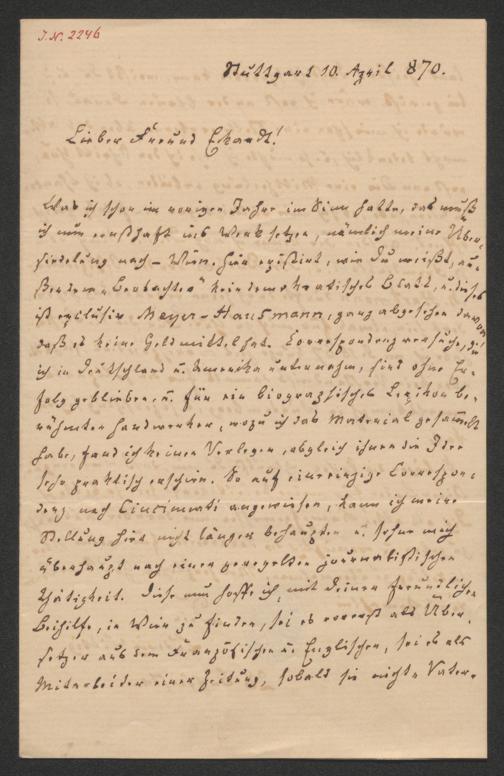 J. N. 2246
Stuttgart 10. April 870.
Lieber Freund Ekardt!
Was ich schon im vorigen Jahre im Sinn hatte, das muß
ich nun ernsthaft ins Werk setzen, nämlich meine Über-
siedelung nach – Wien. Hier existirt, wie Du weißt, au-
ßer dem „Beobachter“ kein demokratisches Blatt, u. dieses
ist exclusiv Mayer-Hausmann, ganz abgesehen davon,
daß es keine Geldmittel hat. Correspondenzversuche, die
ich in Deutschland u. Amerika unternahm, sind ohne Er-
folg geblieben, u. für ein biographisches Lexikon be-
rühmter Handwerker, wozu ich das Material gesammelt
habe, fand ich keinen Verleger, obgleich ihnen die Idee
sehr praktisch erschien. So auf eine einzige Correspon-
denz nach Cincinnati angewiesen, kann ich meine
Stellung hier nicht länger behaupten u. sehne mich
überhaupt nach einer geregelten journalistischen
Thätigkeit. Diese nun hoffe ich, mit Deiner freundlichen
Beihilfe, in Wien zu finden, sei es vorerst als Über-
setzer aus dem Französischen u. Englischen, sei es als
Mitarbeiter einer Zeitung, sobald sie nicht „Vater-